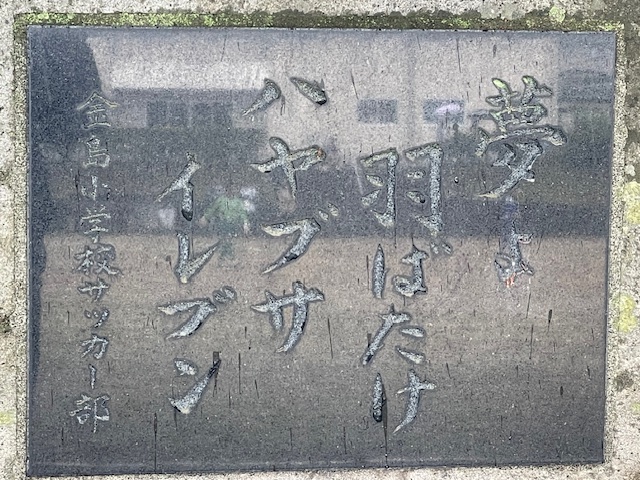 夢よ
羽ばたけ
ハヤブサ
イレブン
金島小学校サッカー部